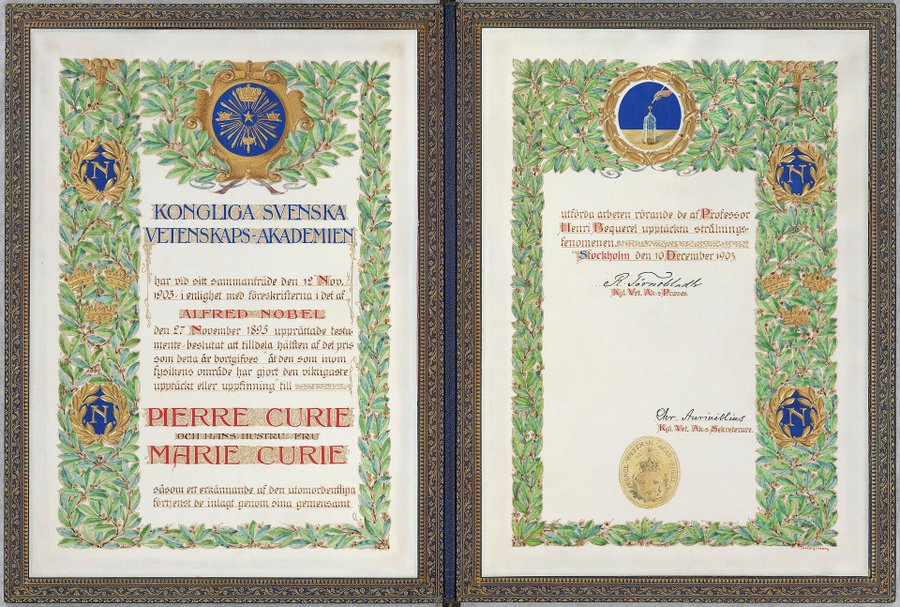 N
N
KONGLIGA SVENSKA
VETENSKAPS-AKADEMIEN
har vid sitt sammanträde den 12 Nov.
1903 i enlighet med föreskrifterna i det af
ALFRED NOBEL
den 27 November 1895 upprättade testa-
mente beslutat att tilldela hälften af det pris
som detta år bortgifves åt den som inom
fysikens område har gjort den viktigaste
upptäckt eller uppfinning till
PIERRE CURIE
OCH HANS HUSTRU FRU
MARIE CURIE
såsom ett erkännande af den utomordentliga
förtjenst de inlagt genom sina gemensamt
N
N
utförda arbeten rörande de af Professor
Henri Bequerel upptäckta strålnings-
fenomenen.
Stockholm den 10 December 1903.
R. Törnebladh
Kgl. Vet. Ak:s Præses.
Chr. Aurivillius
Kgl. Vet. Ak:s Sekreterare.